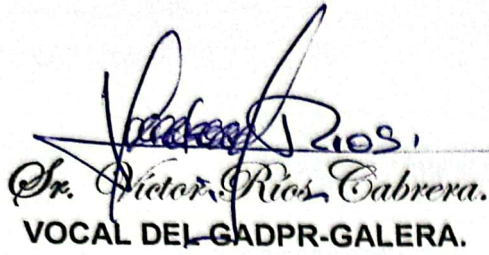 Rios.
Sr. Víctor Ríos Cabrera.
VOCAL DEL GADPR-GALERA.